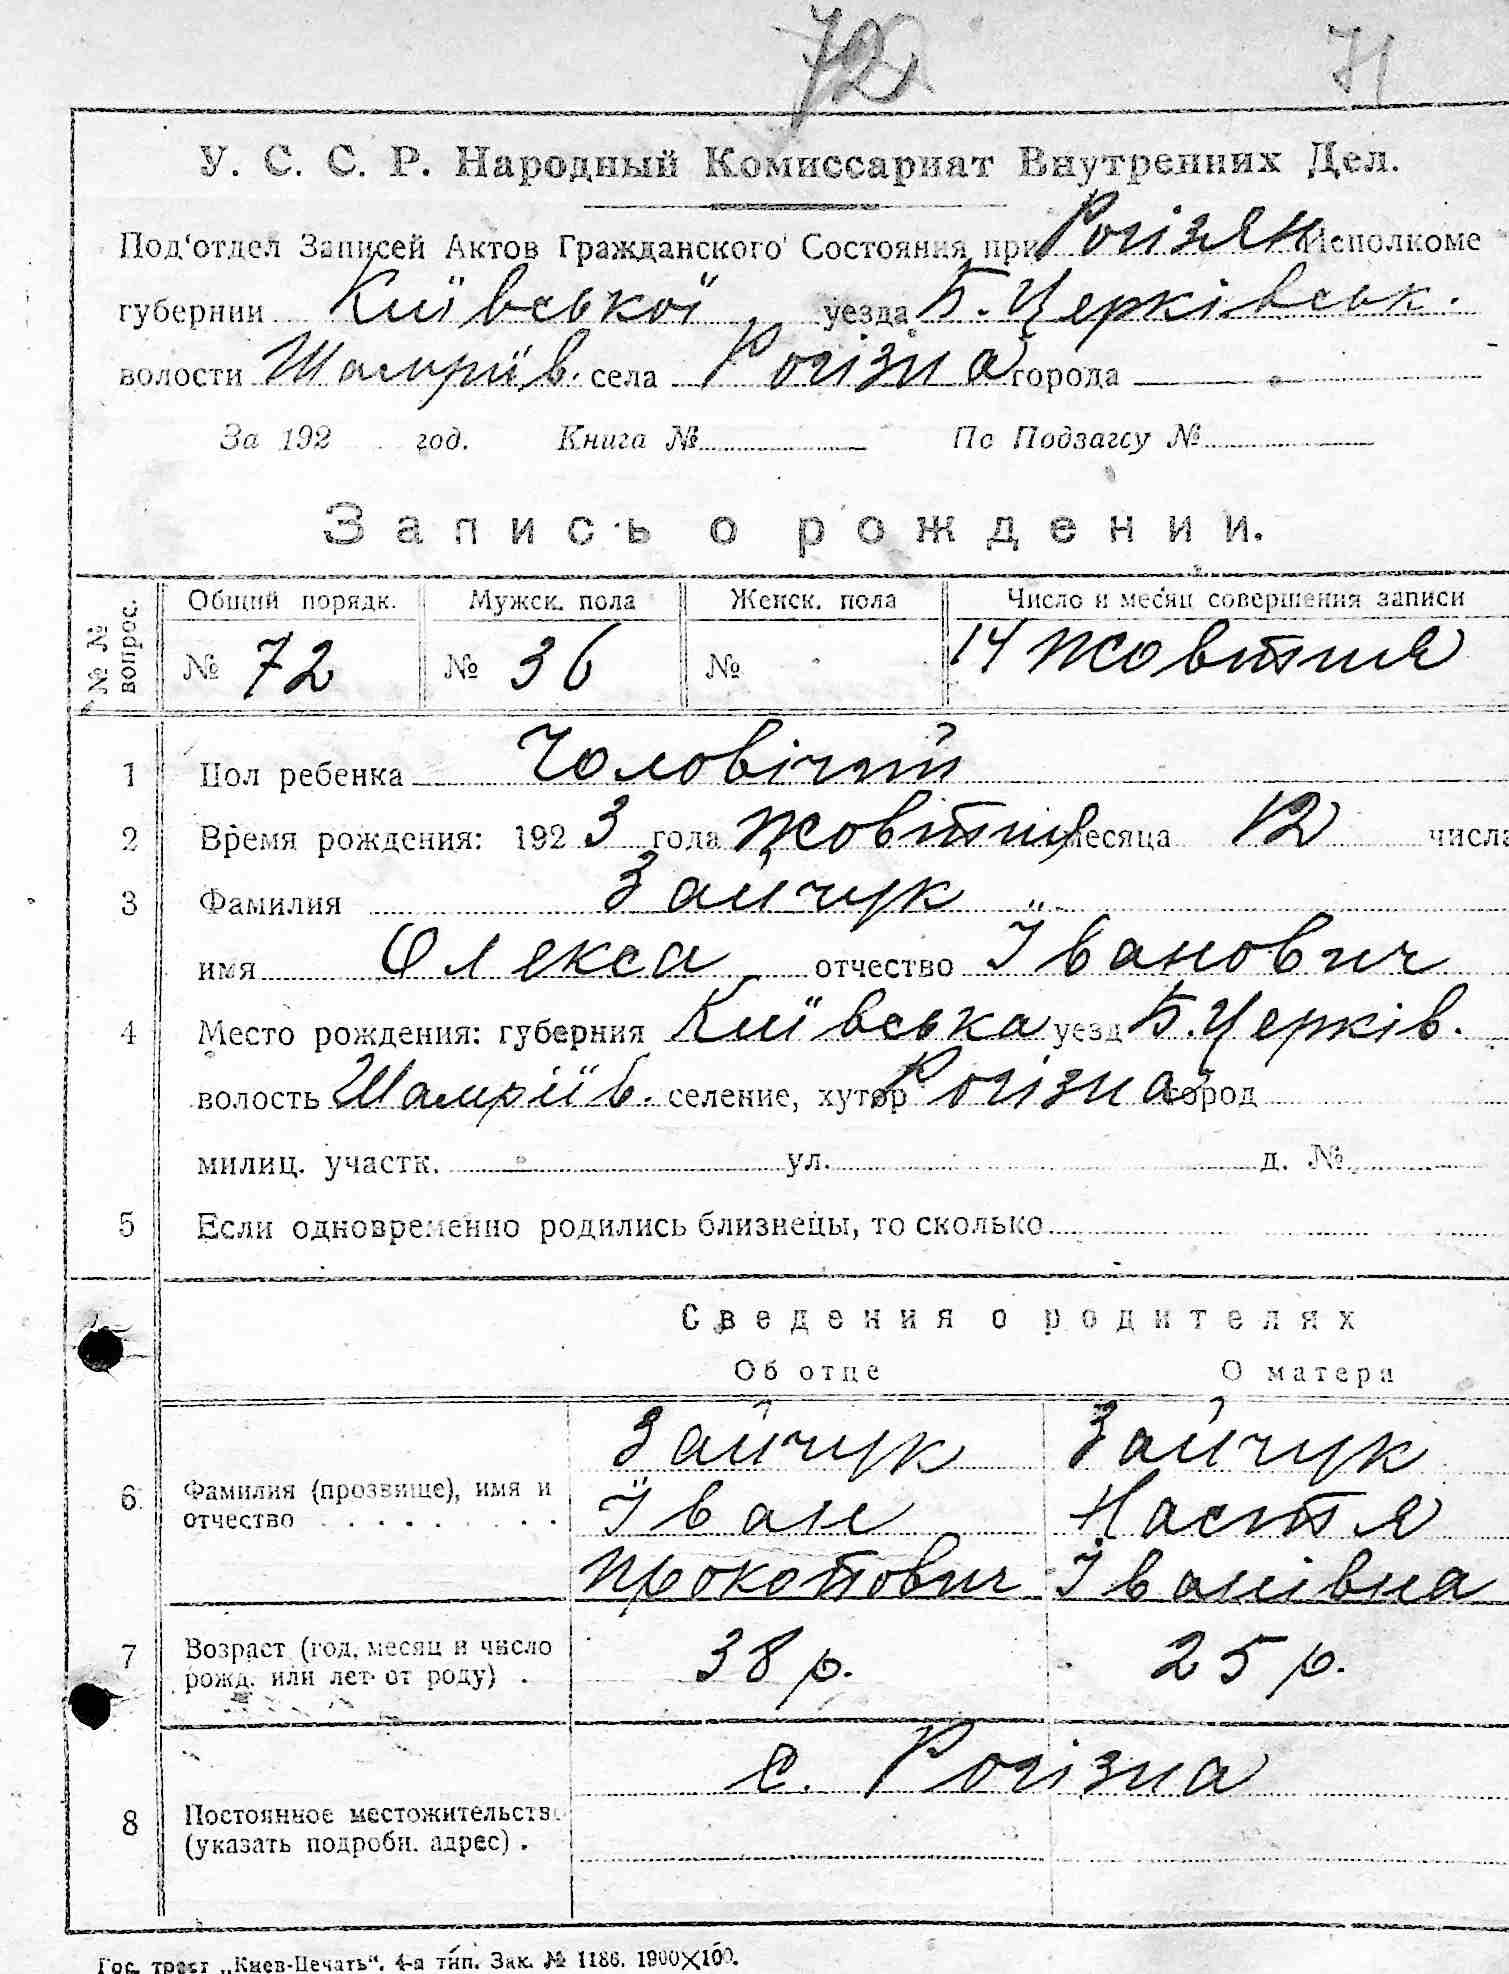 72
71
У. С. С. Р. Народный Комиссариат Внутренних Дел.
Под'отдел Записей Актов Гражданского Состояния при Рогізян Исполкоме
губернии Київської уезда Б. Церківськ.
волости Шамріїв. села Рогізна города
За 192 год. Книга № По Подзагсу №
Запись о рождении.
№ № вопрос. Общий порядк. Мужск. пола Женск. пола Число и месяц совершения записи
№ 72 № 36 № 14 Жовтня
1 Пол ребенка Чоловічий
2 Время рождения: 192 3 года Жовтня месяца 12 числа
3 Фамилия Зайчук
имя Олекса отчество Їванович
4 Место рождения: губерния Київська уезд Б. Церків.
волость Шамріїв. селение, хутор Рогізна город
милиц. участк. ул. д. №
5 Если одновременно родились близнецы, то сколько
Сведения о родителях
Об отце О матери
Зайчук Зайчук
6 Фамилия (прозвище), имя и отчество Їван Настя
Прокопович Іванівна
7 Возраст (год, месяц и число рожд. или лет от роду) . 38 р. 25 р.
с. Рогізна
8 Постоянное местожительство
(указать подробн. адрес) .
Гос. трест „Киев-Печать“. 4-я тип. Зак. № 1186. 1900×100.